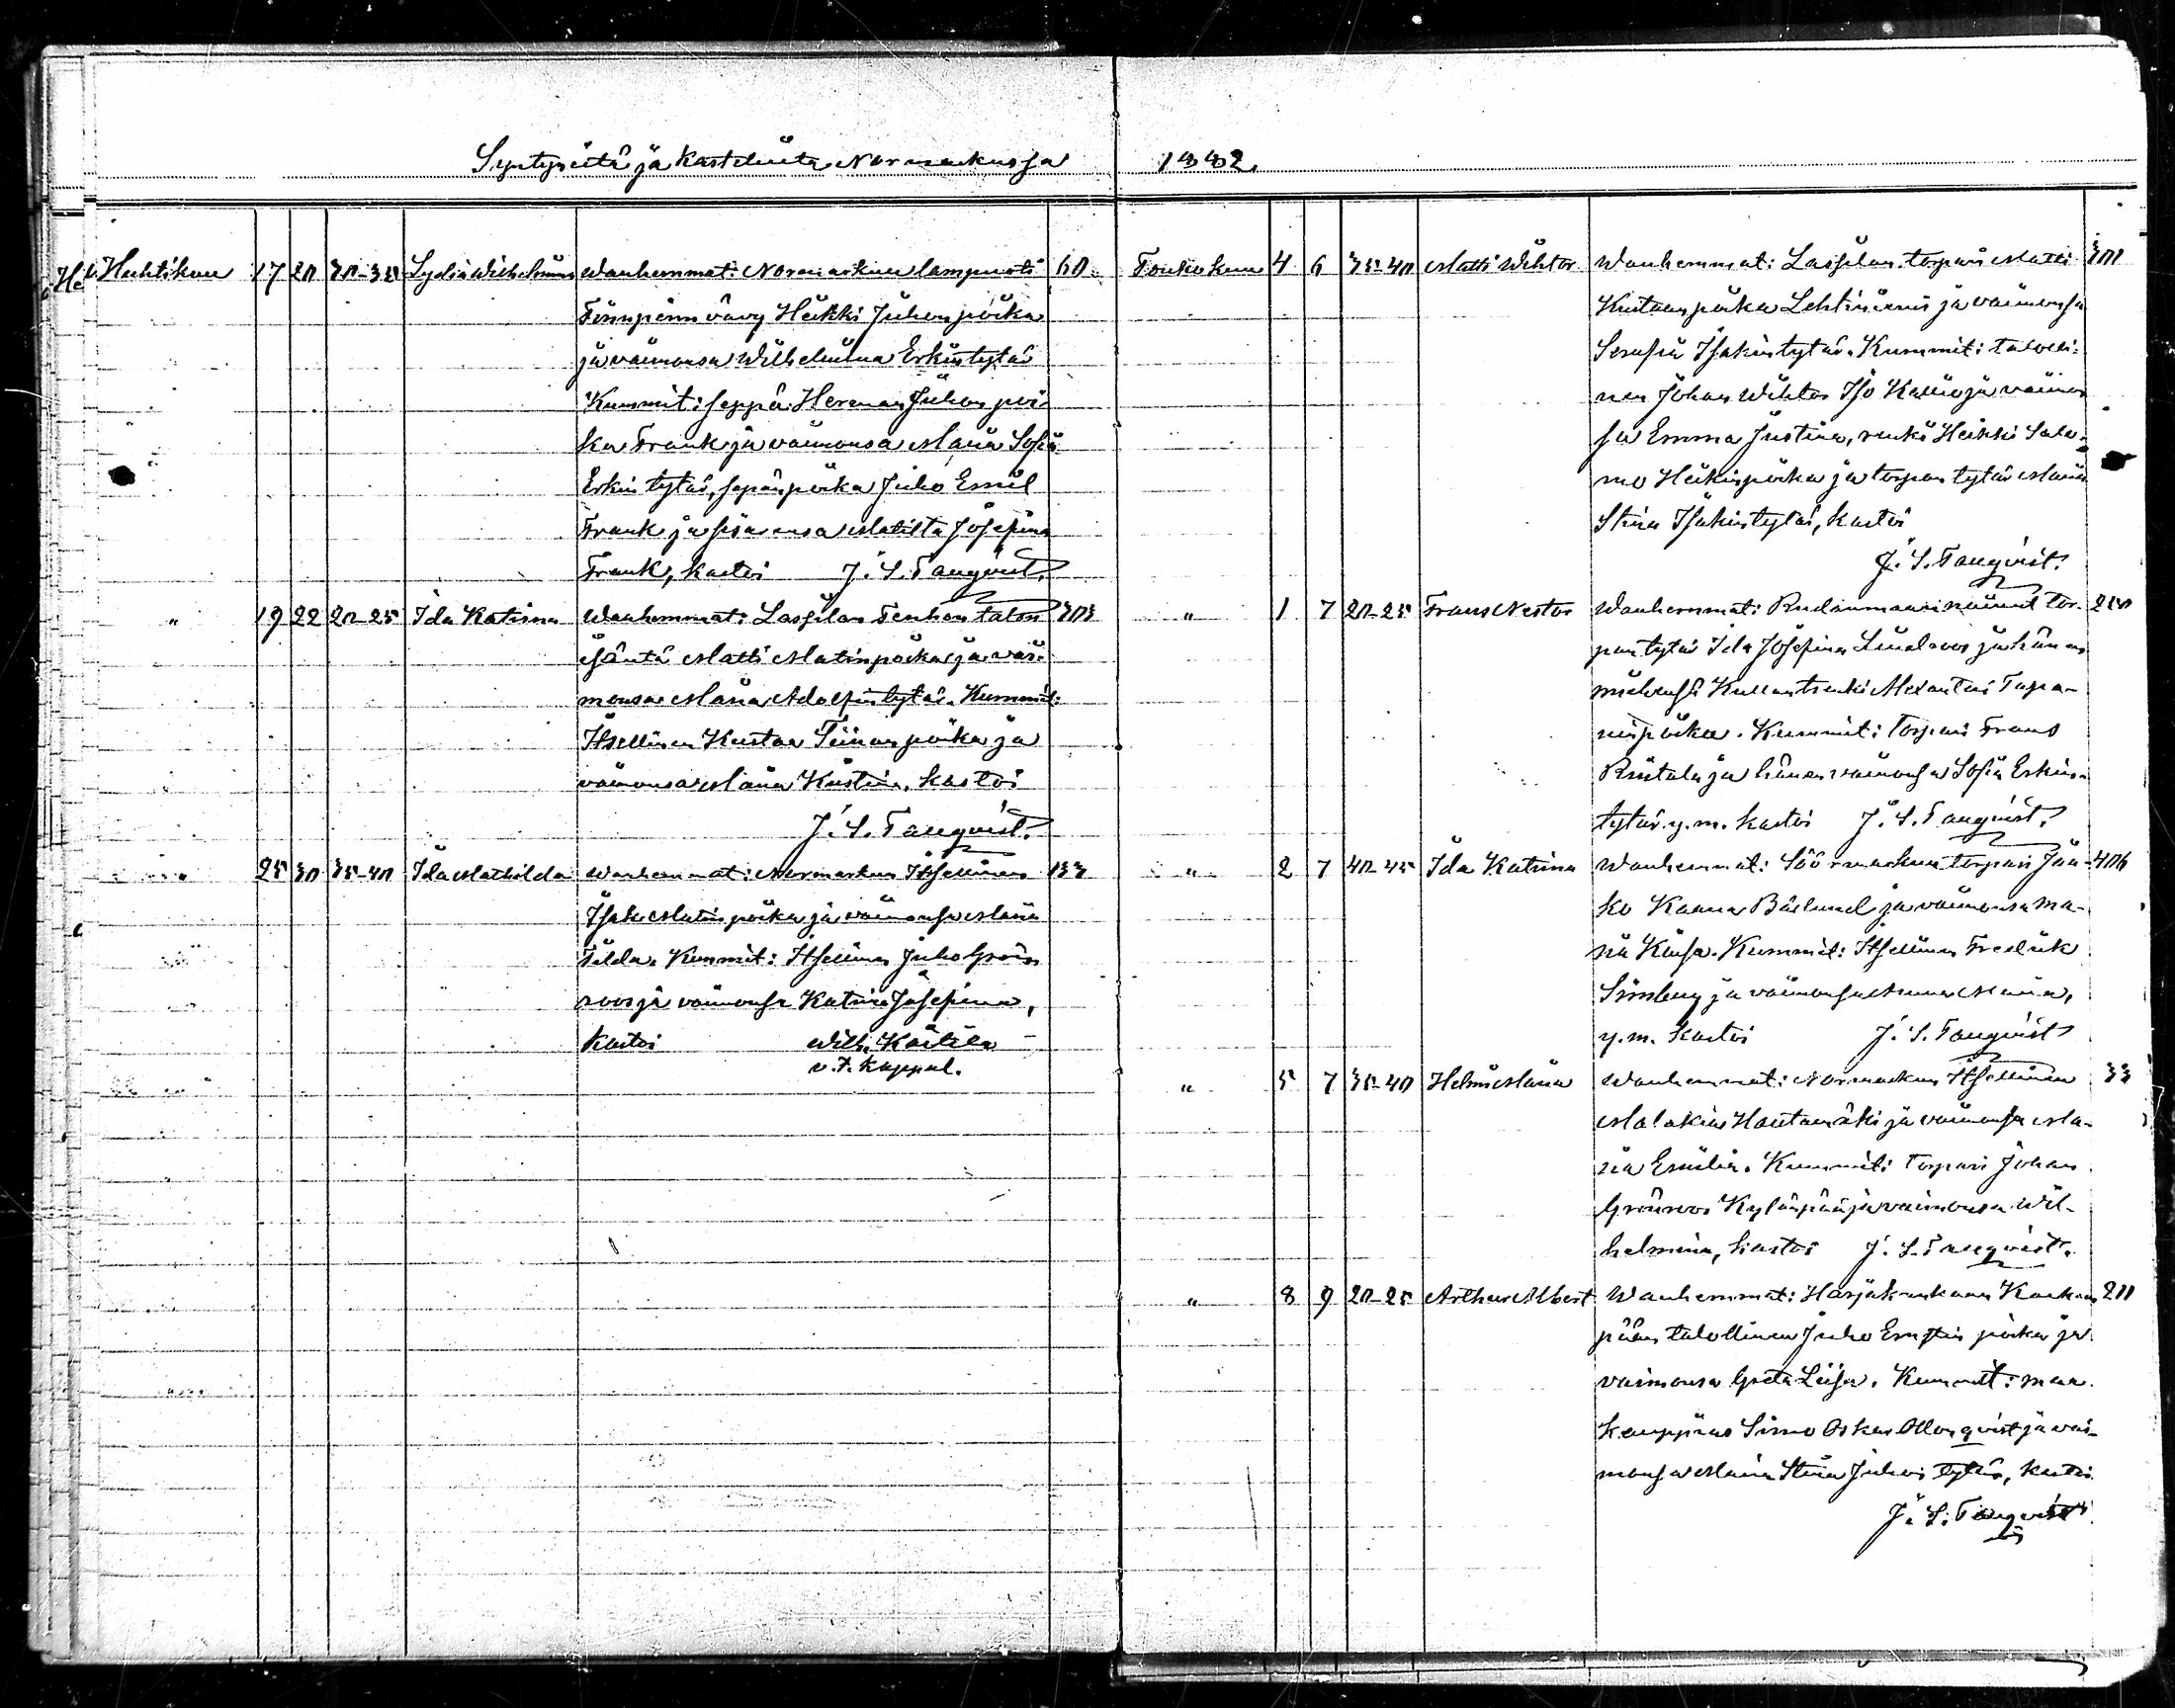 Syntyneitä ja Kastetuita Normarkussa 1882.
Huhtikuu 17 20 30-35 Lydia Wilhelmiina Wanhemmat: Normarkun lampuoti 60
vävy Heikki Juhonpoika
ja vaimonsa Wilhelmiina Erkintytär
Kummit: seppä Herman Juhon poi-
ka Frank ja vaimonsa Maria Sofia
Erkintytär, sepänpoika Juho Emil
Frank ja sisarensa Matilta Josefina
Frank, kastoi J. S. Tanqvist.
" 19 22 20-25 Ida Katrina Wanhemmat: Lassilan Tenhon talon 303
isäntä Matti Matinpoika ja vai-
monsa Maria Adolfintytär. Kummit:
Itsellinen Kustaa poika ja
vaimonsa Maria Kristiina, kastoi
J. S. Tanqvist.
" 25 30 35-40 Ida Mathilda Wanhemmat: Normarkun Itsellinen 133
Isak Matinpoika ja vaimonsa Maria
Tilda. Kummit: Itsellinen Juho Grön-
roos ja vaimonsa Katrina Josefina,
kastoi Wilh. Kartila
v. t. kappal.
Toukokuu 4 6 35-40 Matti Wihtor Wanhemmat: Lassilan torpari Matti 301
Kustaanpoika Lehtiniemi ja vaimonsa
Serafia Isakintytär. Kummit: talolli-
nen Johan Wihtor Iso Kallio ja vaimon-
sa Emma Justina, renki Heikki Salo-
mo Heikinpoika ja torpan tytär Maria
Stina Isakintytär, kastoi
J. S. Tanqvist.
" 1 7 20-25 Frans Nestor Wanhemmat: tor- 250
pan tytär Ida Josefina Lindroos ja hänen
miehensä Alexanteri Tapa-
ninpoika. Kummit: torpari Frans
Riistala ja hänen vaimonsa Sofia Erkin-
tytär y. m. kastoi J. S. Tanqvist.
" 2 7 40-45 Ida Katrina Wanhemmat: Söörmarkun torpari Jaa- 406
ko Kaana Bäcklund ja vaimonsa Ma-
ria Kaisa. Kummit: Itsellinen Fredrik
Sinsberg ja vaimonsa Anna Maria,
y. m. kastoi J. S. Tanqvist
" 5 7 35-40 Helmi Maria Wanhemmat: Normarkun Itsellinen 33
Malakias Hautamäki ja vaimonsa Ma-
ria Emilia. Kummit: Torpari Johan
Grönroos Kylänpää ja vaimonsa Wil-
helmina, kastoi J. S. Tanqvist.
" 8 9 20-25 Arthur Albert Wanhemmat: Harjakankaan Kankaan 211
pään talollinen Juho Ernstin poika ja
vaimonsa Greta Liisa. Kummit: maa
kauppias Simo Oskar ja vai-
monsa Maria Stina Juhon tytär, kastoi
J. S. Tanqvist